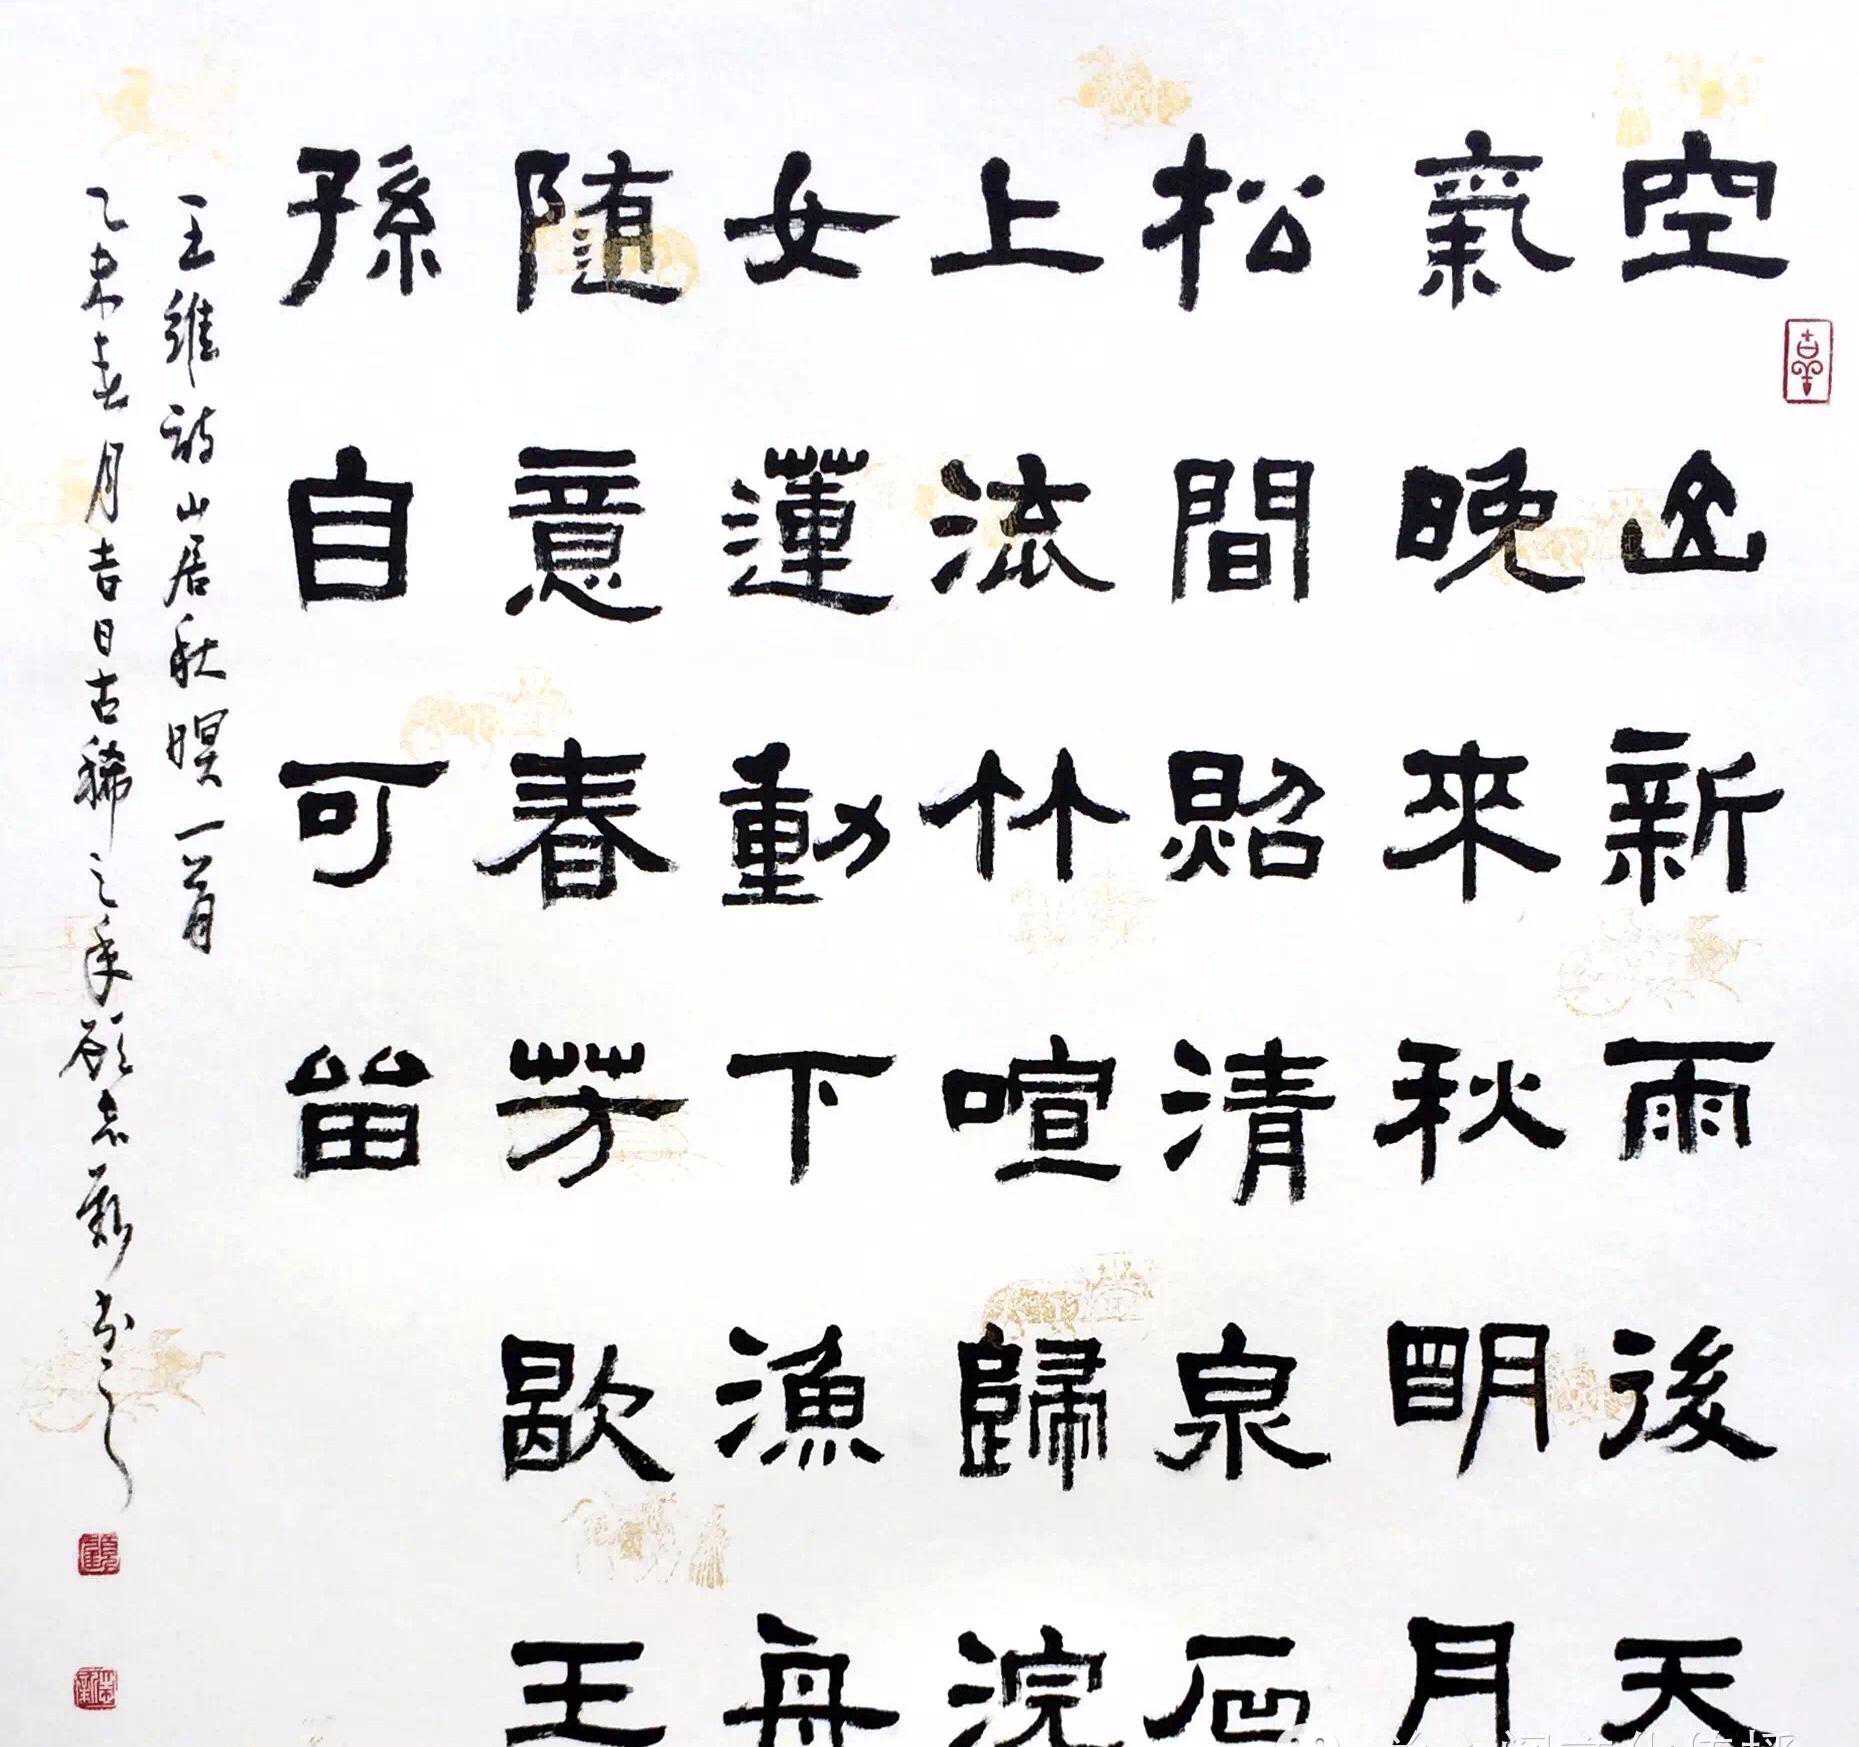 空山新雨後天
氣晚來秋明月
松間照清泉石
上流竹喧歸浣
女蓮動下漁舟
随意春芳歇王
孫自可留
王維詩山居秋暝一首
乙未春月吉日古稀之年顧志新書